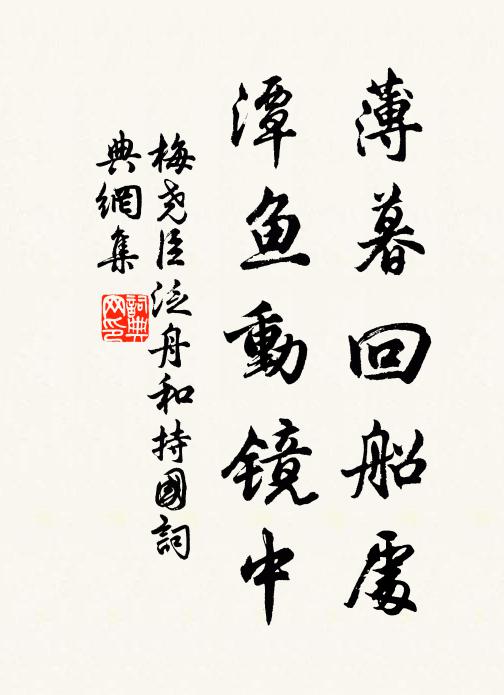 薄暮回船處
潭鱼動镜中
梅尧臣泛舟和持國詞
典網集
詞典网印